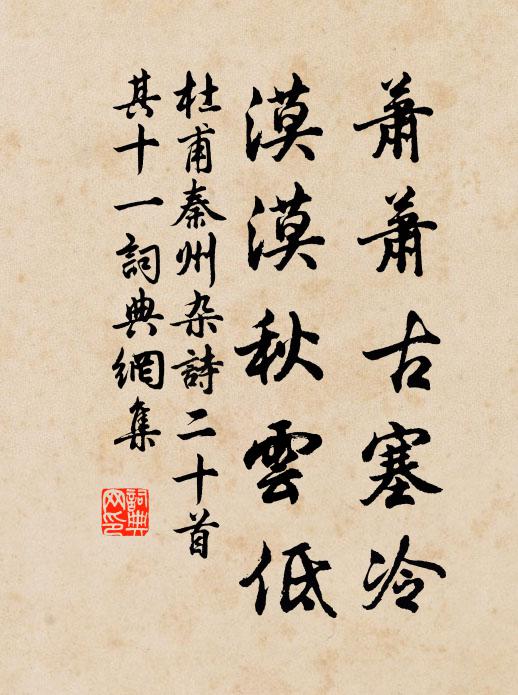 蕭蕭古塞冷
漠漠秋雲低
杜甫秦州杂詩二十首
其十一詞典網集
詞典网印